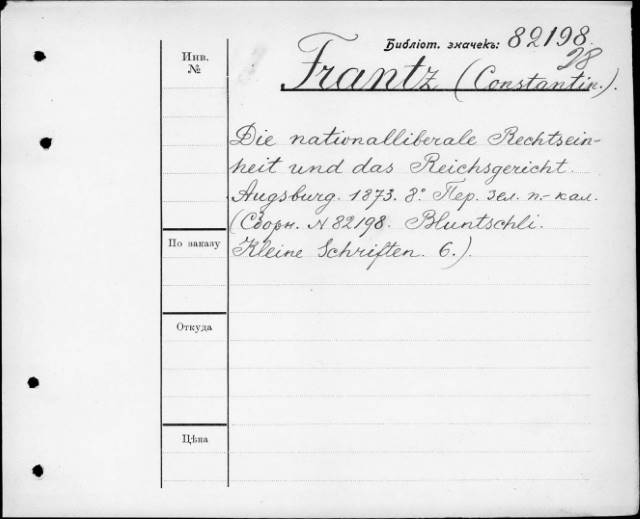 Библіот. значекъ: 82198.
28
Инв.
№
Frantz (Constantin.).
Die nationalliberale Rechtsein-
heit und das Reichsgericht.
Augsburg. 1873. 8°. Пер. зел. п.-кал.
(Сборн. N 82198. Bluntschli.
Kleine Schriften. 6.).
По заказу
Откуда
Цѣна